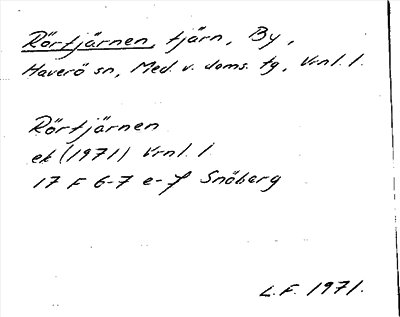 Rörtjärnen, tjärn, By,
Haverö sn, Med. v. doms. tg, Vrnl. l.
Rörtjärnen
ek (1971) Vrnl. l
17 F 6-7 e-f Snöberg
L.F. 1971.